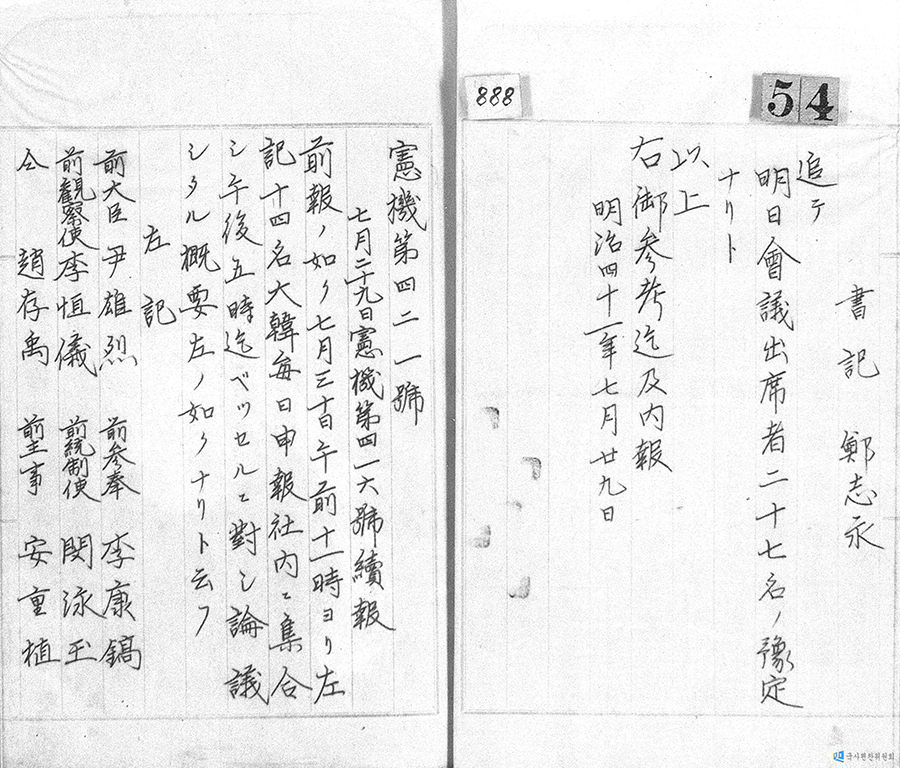 54
書記 鄭志永
追テ
明日會議出席者二十七名ノ豫定
ナリト
以上
右御参考迄及内報
明治四十一年七月廿九日
888
憲機第四二一號
七月二十九日憲機第四一六號續報
前報ノ如ク七月三十日午前十一時ヨリ左
記十四名大韓每日申報社内ニ集合
シ午後五時迄ベツセルニ對シ論議
シタル概要左ノ如クナリト云フ
左記
前大臣 尹雄烈 前参奉 李康鎬
前觀察使 李恒儀 前統制使 閔泳玉
仝 趙存禹 前主事 安重植
국사편찬위원회